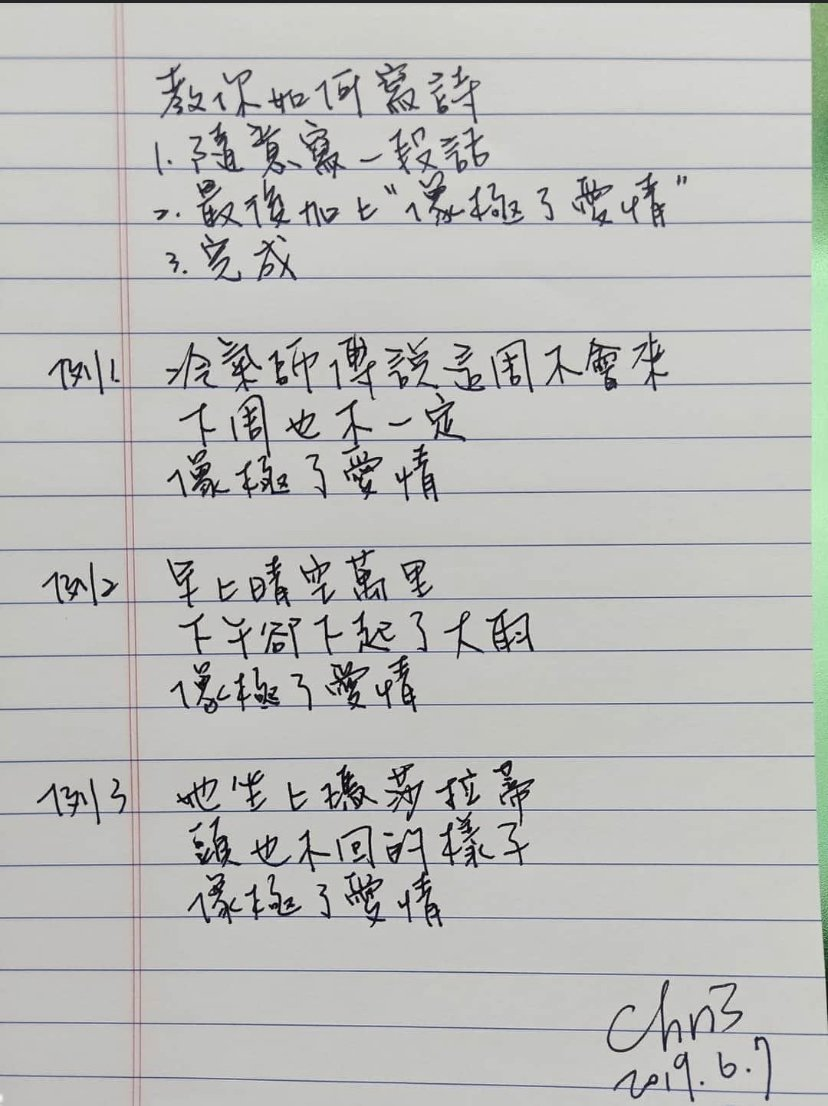 教你如何寫詩
1. 隨意寫一段話
2. 最後加上"像極了愛情"
3. 完成
例1. 冷氣師傅說這周不會來
下周也不一定
像極了愛情
例2 早上晴空萬里
下午卻下起了大雨
像極了愛情
例3 她坐上瑪莎拉蒂
頭也不回的樣子
像極了愛情
2019.6.7